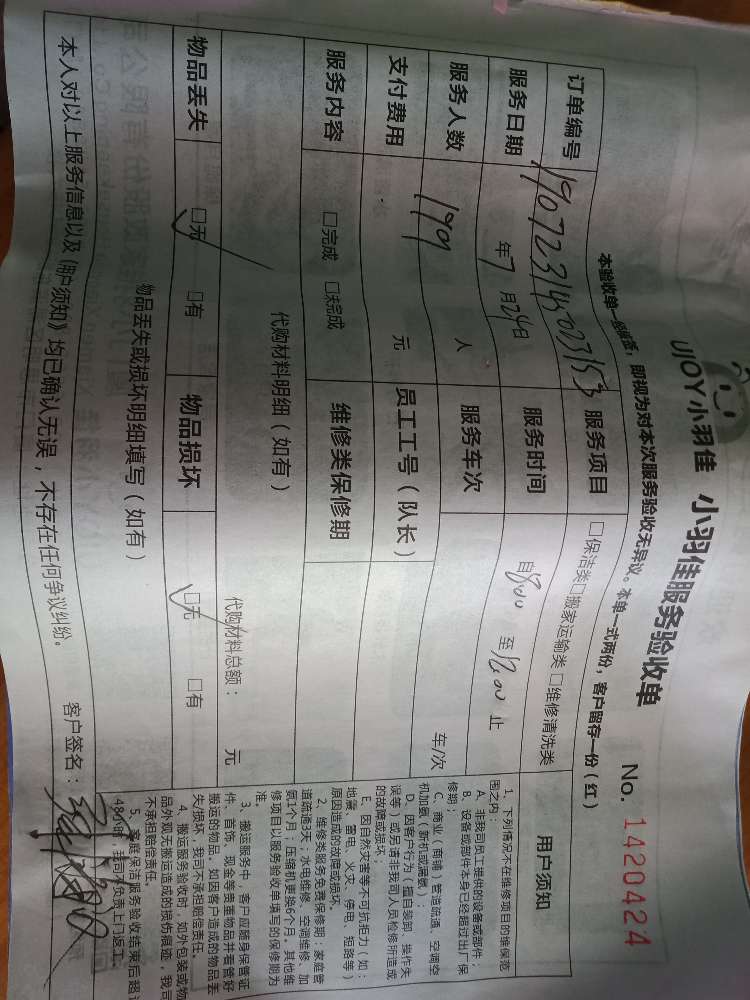 UJOY小羽佳 小羽佳服务验收单 No. 1420424
本验收单一经签签，即视为对本次服务验收无异议。本单一式两份，客户留存一份（红）
订单编号 服务项目 □保洁类□搬家运输类 □维修清洗类
服务日期 年7月24日 服务时间 自8:00 至12:00 止
服务人数 人 服务车次 车/次
支付费用 199 元 员工工号（队长）
服务内容 □完成 □未完成 维修类保修期
代购材料明细（如有）
代购材料总额： 元
物品丢失 □无 □有 物品损坏 □无 □有
物品丢失或损坏明细填写（如有）
本人对以上服务信息以及《用户须知》均已确认无误，不存在任何争议纠纷。
客户签名：
用户须知
1、下列情况不在维修项目的维保范
围之内：
A、非我司员工提供的设备或部件；
B、设备或部件本身已经超过出厂保
修期；
C、商业（商铺）管道疏通、空调空
机加氨（新机或漏氨）
D、因客户行为（擅自装卸、操作失
误等）或另请非我司人员检修所造成
的故障或损坏
E、因自然灾害等不可抗拒力（如：
地震、雷电、火灾、停电、短路等）
原因造成的故障或损坏。
2、维修类服务免费保修期：家庭管
道疏通3天；水电维修、空调维修、加
氨1个月；压缩机更换6个月。其他维
修项目以服务验收单填写的保修期为
准。
3、搬运服务中，客户应随身保管证
件、首饰、现金等贵重物品并看管好
搬运的物品。如因客户造成的物品丢
失/损坏，我司不承担赔偿责任。
4、搬运服务验收时，如外包装或物
品外观无搬运造成的损伤痕迹，我司
不承担赔偿责任。
5、家庭保洁服务验收结束后超过
48小时，我司不负责上门返工。